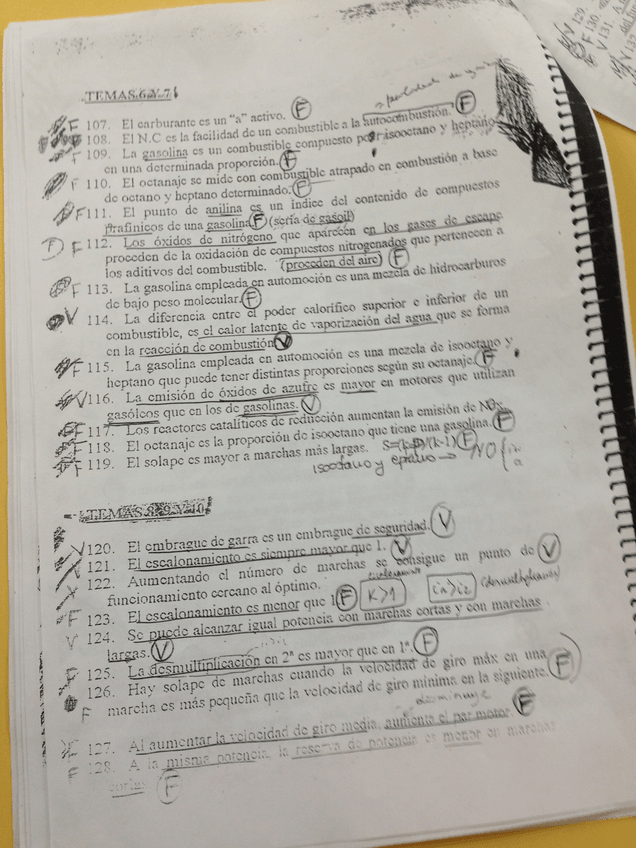 V 129.
F 130.
V 131.
TEMAS 6 Y 7
F 107. El carburante es un "a" activo. F
108. El N.C es la facilidad de un combustible a la autocombustión. F
F 109. La gasolina es un combustible compuesto por isooctano y heptano
en una determinada proporción. F
F 110. El octanaje se mide con combustible atrapado en combustión a base
de octano y heptano determinado. F
F 111. El punto de anilina es un índice del contenido de compuestos
prafínicos de una gasolina F (sería de gasoil)
F F 112. Los óxidos de nitrógeno que aparecen en los gases de escape
proceden de la oxidación de compuestos nitrogenados que pertenecen a
los aditivos del combustible. (proceden del aire) F
F 113. La gasolina empleada en automoción es una mezcla de hidrocarburos
de bajo peso molecular. F
V 114. La diferencia entre el poder calorífico superior e inferior de un
combustible, es el calor latente de vaporización del agua que se forma
en la reacción de combustión V
F 115. La gasolina empleada en automoción es una mezcla de isooctano y
heptano que puede tener distintas proporciones según su octanaje. F
V 116. La emisión de óxidos de azufre es mayor en motores que utilizan
gasóleos que en los de gasolinas. V
F 117. Los reactores catalíticos de reducción aumentan la emisión de NOx.
F 118. El octanaje es la proporción de isooctano que tiene una gasolina. F
F 119. El solape es mayor a marchas más largas. F
isooctano y → NO
TEMAS 8, 9 Y 10
V 120. El embrague de garra es un embrague de seguridad. V
121. El escalonamiento es siempre mayor que 1. V
122. Aumentando el número de marchas se consigue un punto de V
funcionamiento cercano al óptimo.
F 123. El escalonamiento es menor que 1 F K>1 i1>i2
V 124. Se puede alcanzar igual potencia con marchas cortas y con marchas
largas. V
F 125. La desmultiplicación en 2ª es mayor que en 1ª. F
F 126. Hay solape de marchas cuando la velocidad de giro máx en una
marcha es más pequeña que la velocidad de giro mínima en la siguiente. F
disminuye
F 127. Al aumentar la velocidad de giro media, aumenta el par motor. F
F 128. A la misma potencia, la reserva de potencia es menor en marchas
cortas. F